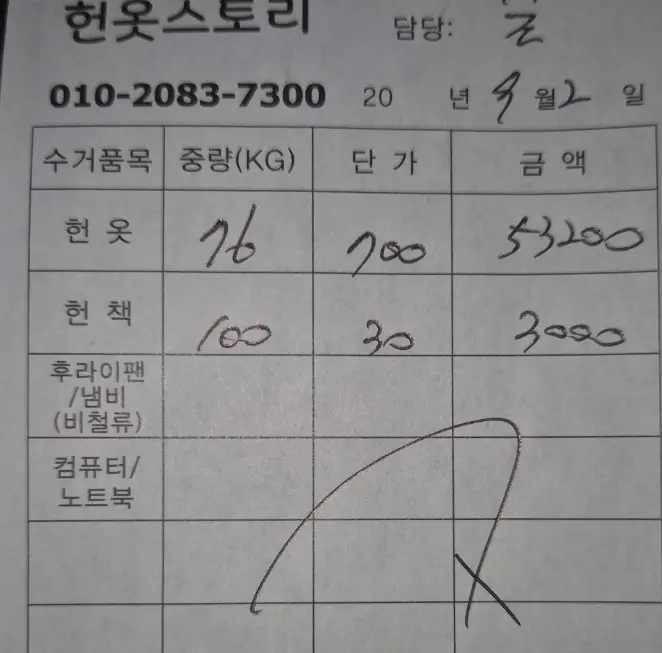 헌옷스토리 담당:
010-2083-7300 20 년 9월 2일
수거품목 중량(KG) 단 가 금 액
헌 옷 76 700 53200
헌 책 100 30 3000
후라이팬
/냄비
(비철류)
컴퓨터/
노트북